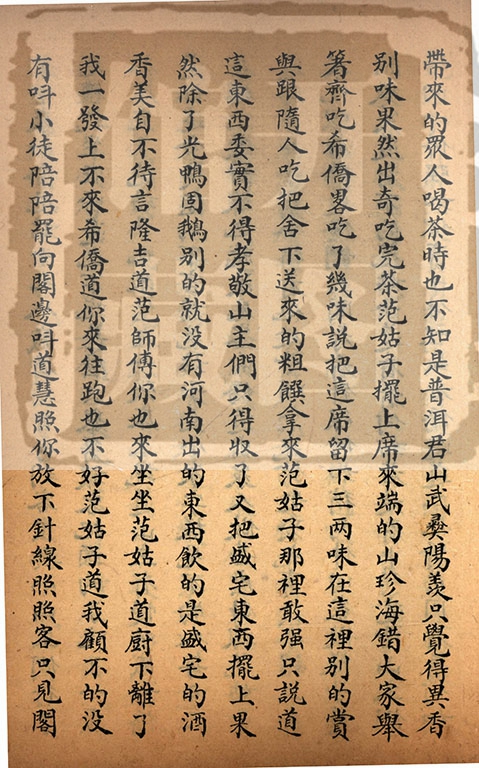 帶來的眾人喝茶時也不知是普洱君山武彝陽羡只覺得異香
别味果然出奇吃完茶范姑子擺上席來端的山珍海錯大家舉
箸齊吃希僑畧吃了幾味説把這席留下三两味在這裡别的賞
與跟隨人吃把舍下送來的粗饌拿來范姑子那裡敢强只説道
這東西委實不得孝敬山主們只得收了又把盛宅東西擺上果
然除了光鴨固鵝别的就没有河南出的東西飲的是盛宅的酒
香美自不待言隆吉道范師傅你也來坐坐范姑子道厨下離了
我一發上不來希僑道你來往跑也不好范姑子道我顧不的没
有呌小徒陪陪罷向閣邊呌道慧照你放下針線照照客只見閣